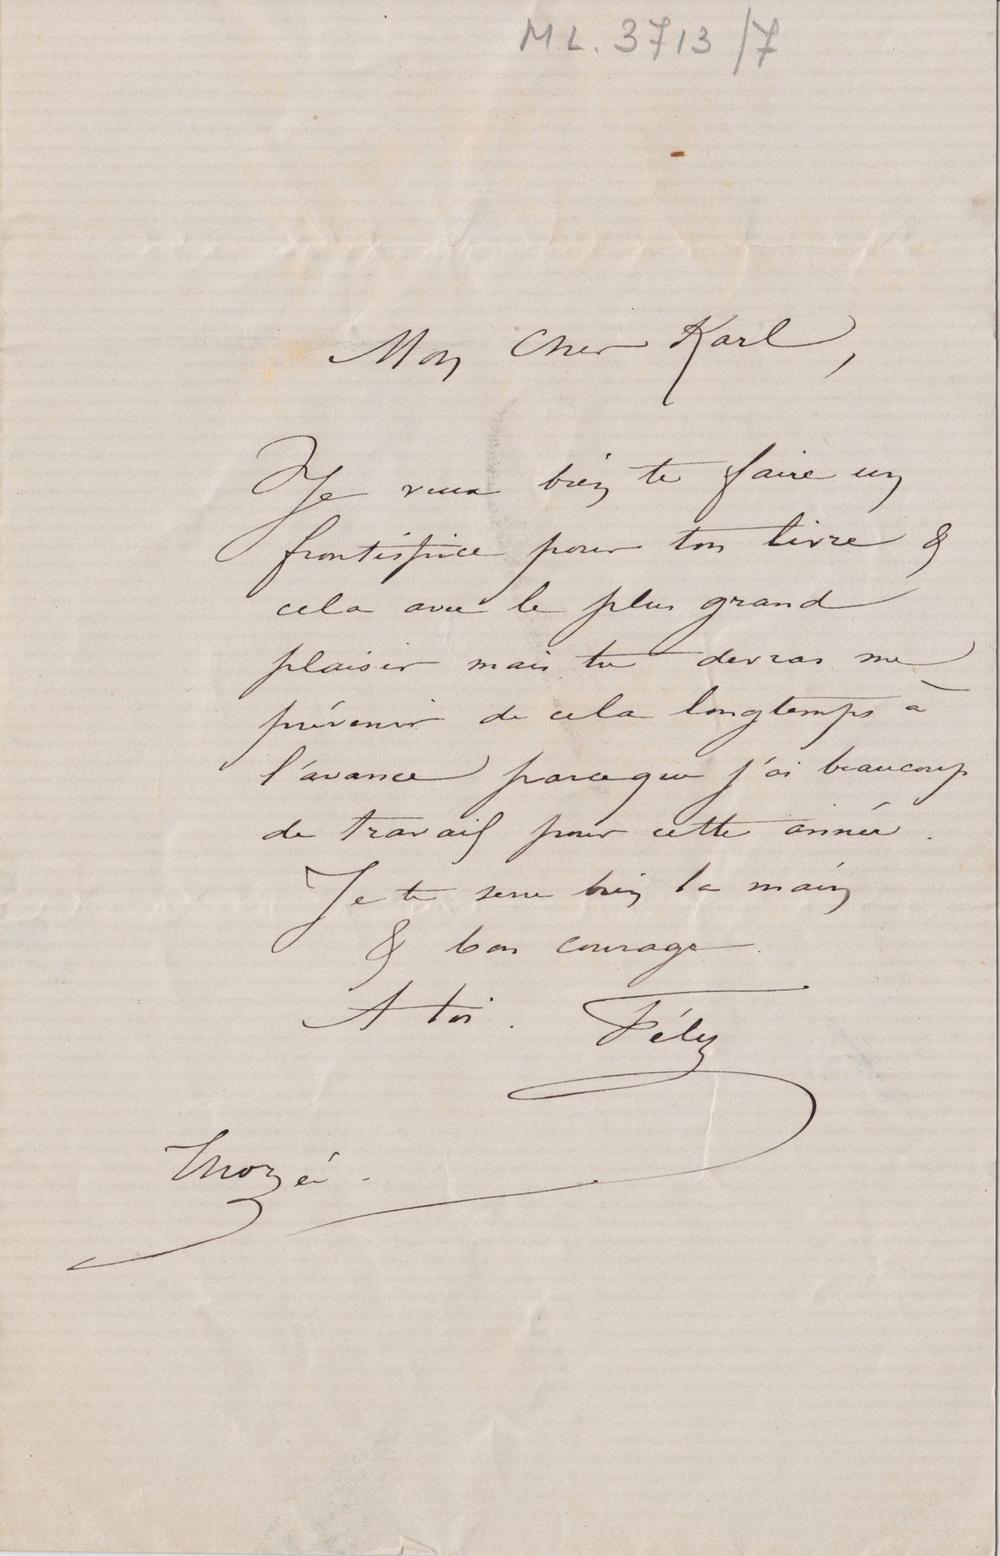 ML. 3713/7
Mon Cher Karl,
Je veux bien te faire un
frontispice pour ton livre &
cela avec le plus grand
plaisir mais tu devras me
prévenir de cela longtemps à
l'avance parceque j'ai beaucoup
de travail pour cette année.
Je te serre bien la main
& bon courage.
A toi. Fély
Thozée.